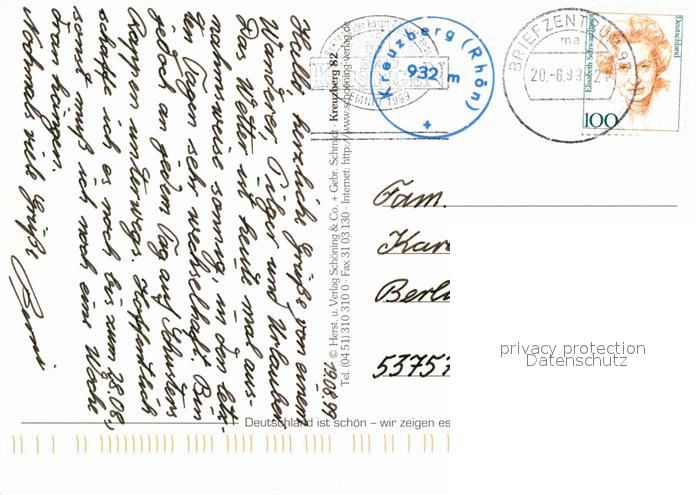 19.08.99
Hallo, herzliche Grüße von einem
Wanderer, Pilger und Urlauber.
Das Wetter ist heute mal aus-
nahmsweise sonnig, in den letz-
ten Tagen sehr wechselhaft. Bin
jedoch an jedem Tag auf Schusters
Rappen unterwegs. Hoffentlich
schaffe ich es noch bis zum 28.08.,
sonst muß ich noch eine Woche
dran hängen.
Nochmals viele Grüße
© Herst. u. Verlag Schöning & Co. + Gebr. Schmidt · Kreuzberg 82
Tel. (04 51) 310 310 0 · Fax 31 03 130 · Internet: http://www.schoening-verlag.de
Kreuzberg (Rhön)
932 m
BRIEFZENTRUM 97
ma
20.-8.99
Deutschland
Elisabeth Schwarzhaupt
100
Fam.
Kar
Berli
53757
privacy protection
Datenschutz
Deutschland ist schön – wir zeigen es